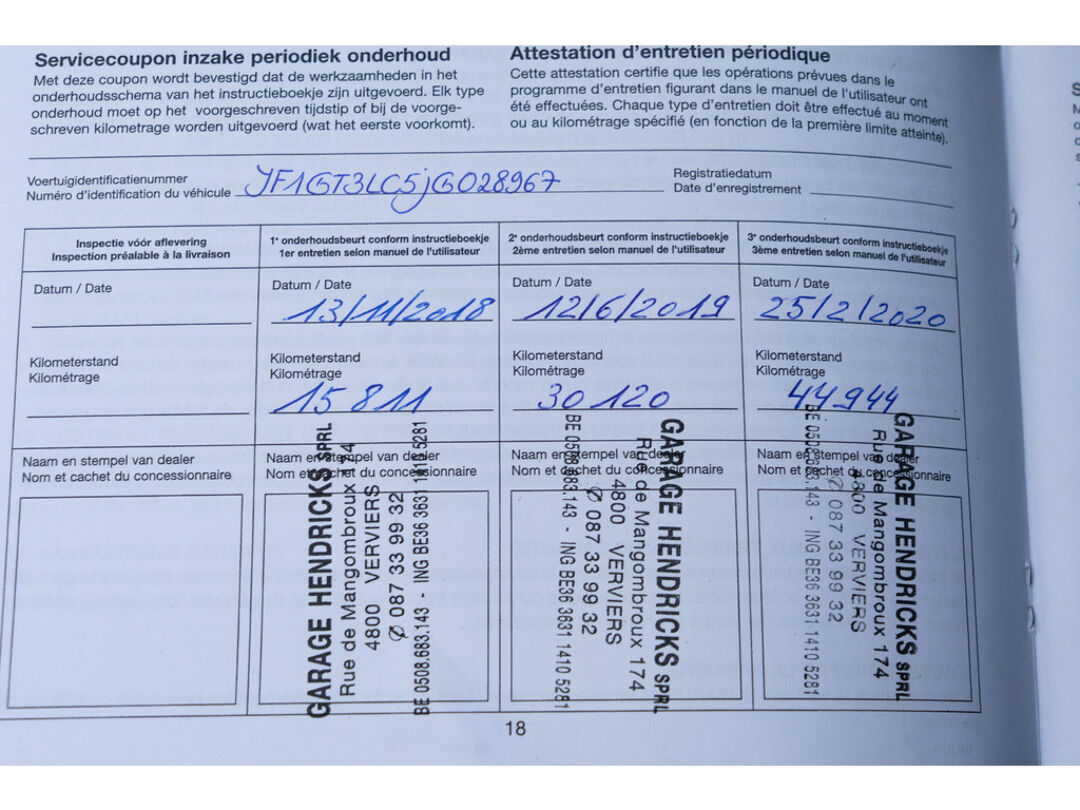 Servicecoupon inzake periodiek onderhoud
Met deze coupon wordt bevestigd dat de werkzaamheden in het
onderhoudsschema van het instructieboekje zijn uitgevoerd. Elk type
onderhoud moet op het voorgeschreven tijdstip of bij de voorge-
schreven kilometrage worden uitgevoerd (wat het eerste voorkomt).
Attestation d'entretien périodique
Cette attestation certifie que les opérations prévues dans le
programme d'entretien figurant dans le manuel de l'utilisateur ont
été effectuées. Chaque type d'entretien doit être effectué au moment
ou au kilométrage spécifié (en fonction de la première limite atteinte).
Voertuigidentificatienummer
Numéro d'identification du véhicule JF1GT3LC5jG028967
Registratiedatum
Date d'enregistrement
Inspectie vóór aflevering
Inspection préalable à la livraison
Datum / Date
Kilometerstand
Kilométrage
Naam en stempel van dealer
Nom et cachet du concessionnaire
1e onderhoudsbeurt conform instructieboekje
1er entretien selon manuel de l'utilisateur
Datum / Date
13/11/2018
Kilometerstand
Kilométrage
15 811
Naam en stempel van dealer
Nom et cachet du concessionnaire
GARAGE HENDRICKS SPRL
Rue de Mangombroux 174
4800 VERVIERS
∅ 087 33 99 32
BE 0508.683.143 - ING BE36 3631 1410 5281
2e onderhoudsbeurt conform instructieboekje
2ème entretien selon manuel de l'utilisateur
Datum / Date
12/6/2019
Kilometerstand
Kilométrage
30 120
Naam en stempel van dealer
Nom et cachet du concessionnaire
GARAGE HENDRICKS SPRL
Rue de Mangombroux 174
4800 VERVIERS
∅ 087 33 99 32
BE 0508.683.143 - ING BE36 3631 1410 5281
3e onderhoudsbeurt conform instructieboekje
3ème entretien selon manuel de l'utilisateur
Datum / Date
25/2/2020
Kilometerstand
Kilométrage
44944
Naam en stempel van dealer
Nom et cachet du concessionnaire
GARAGE HENDRICKS SPRL
Rue de Mangombroux 174
4800 VERVIERS
∅ 087 33 99 32
BE 0508.683.143 - ING BE36 3631 1410 5281
18